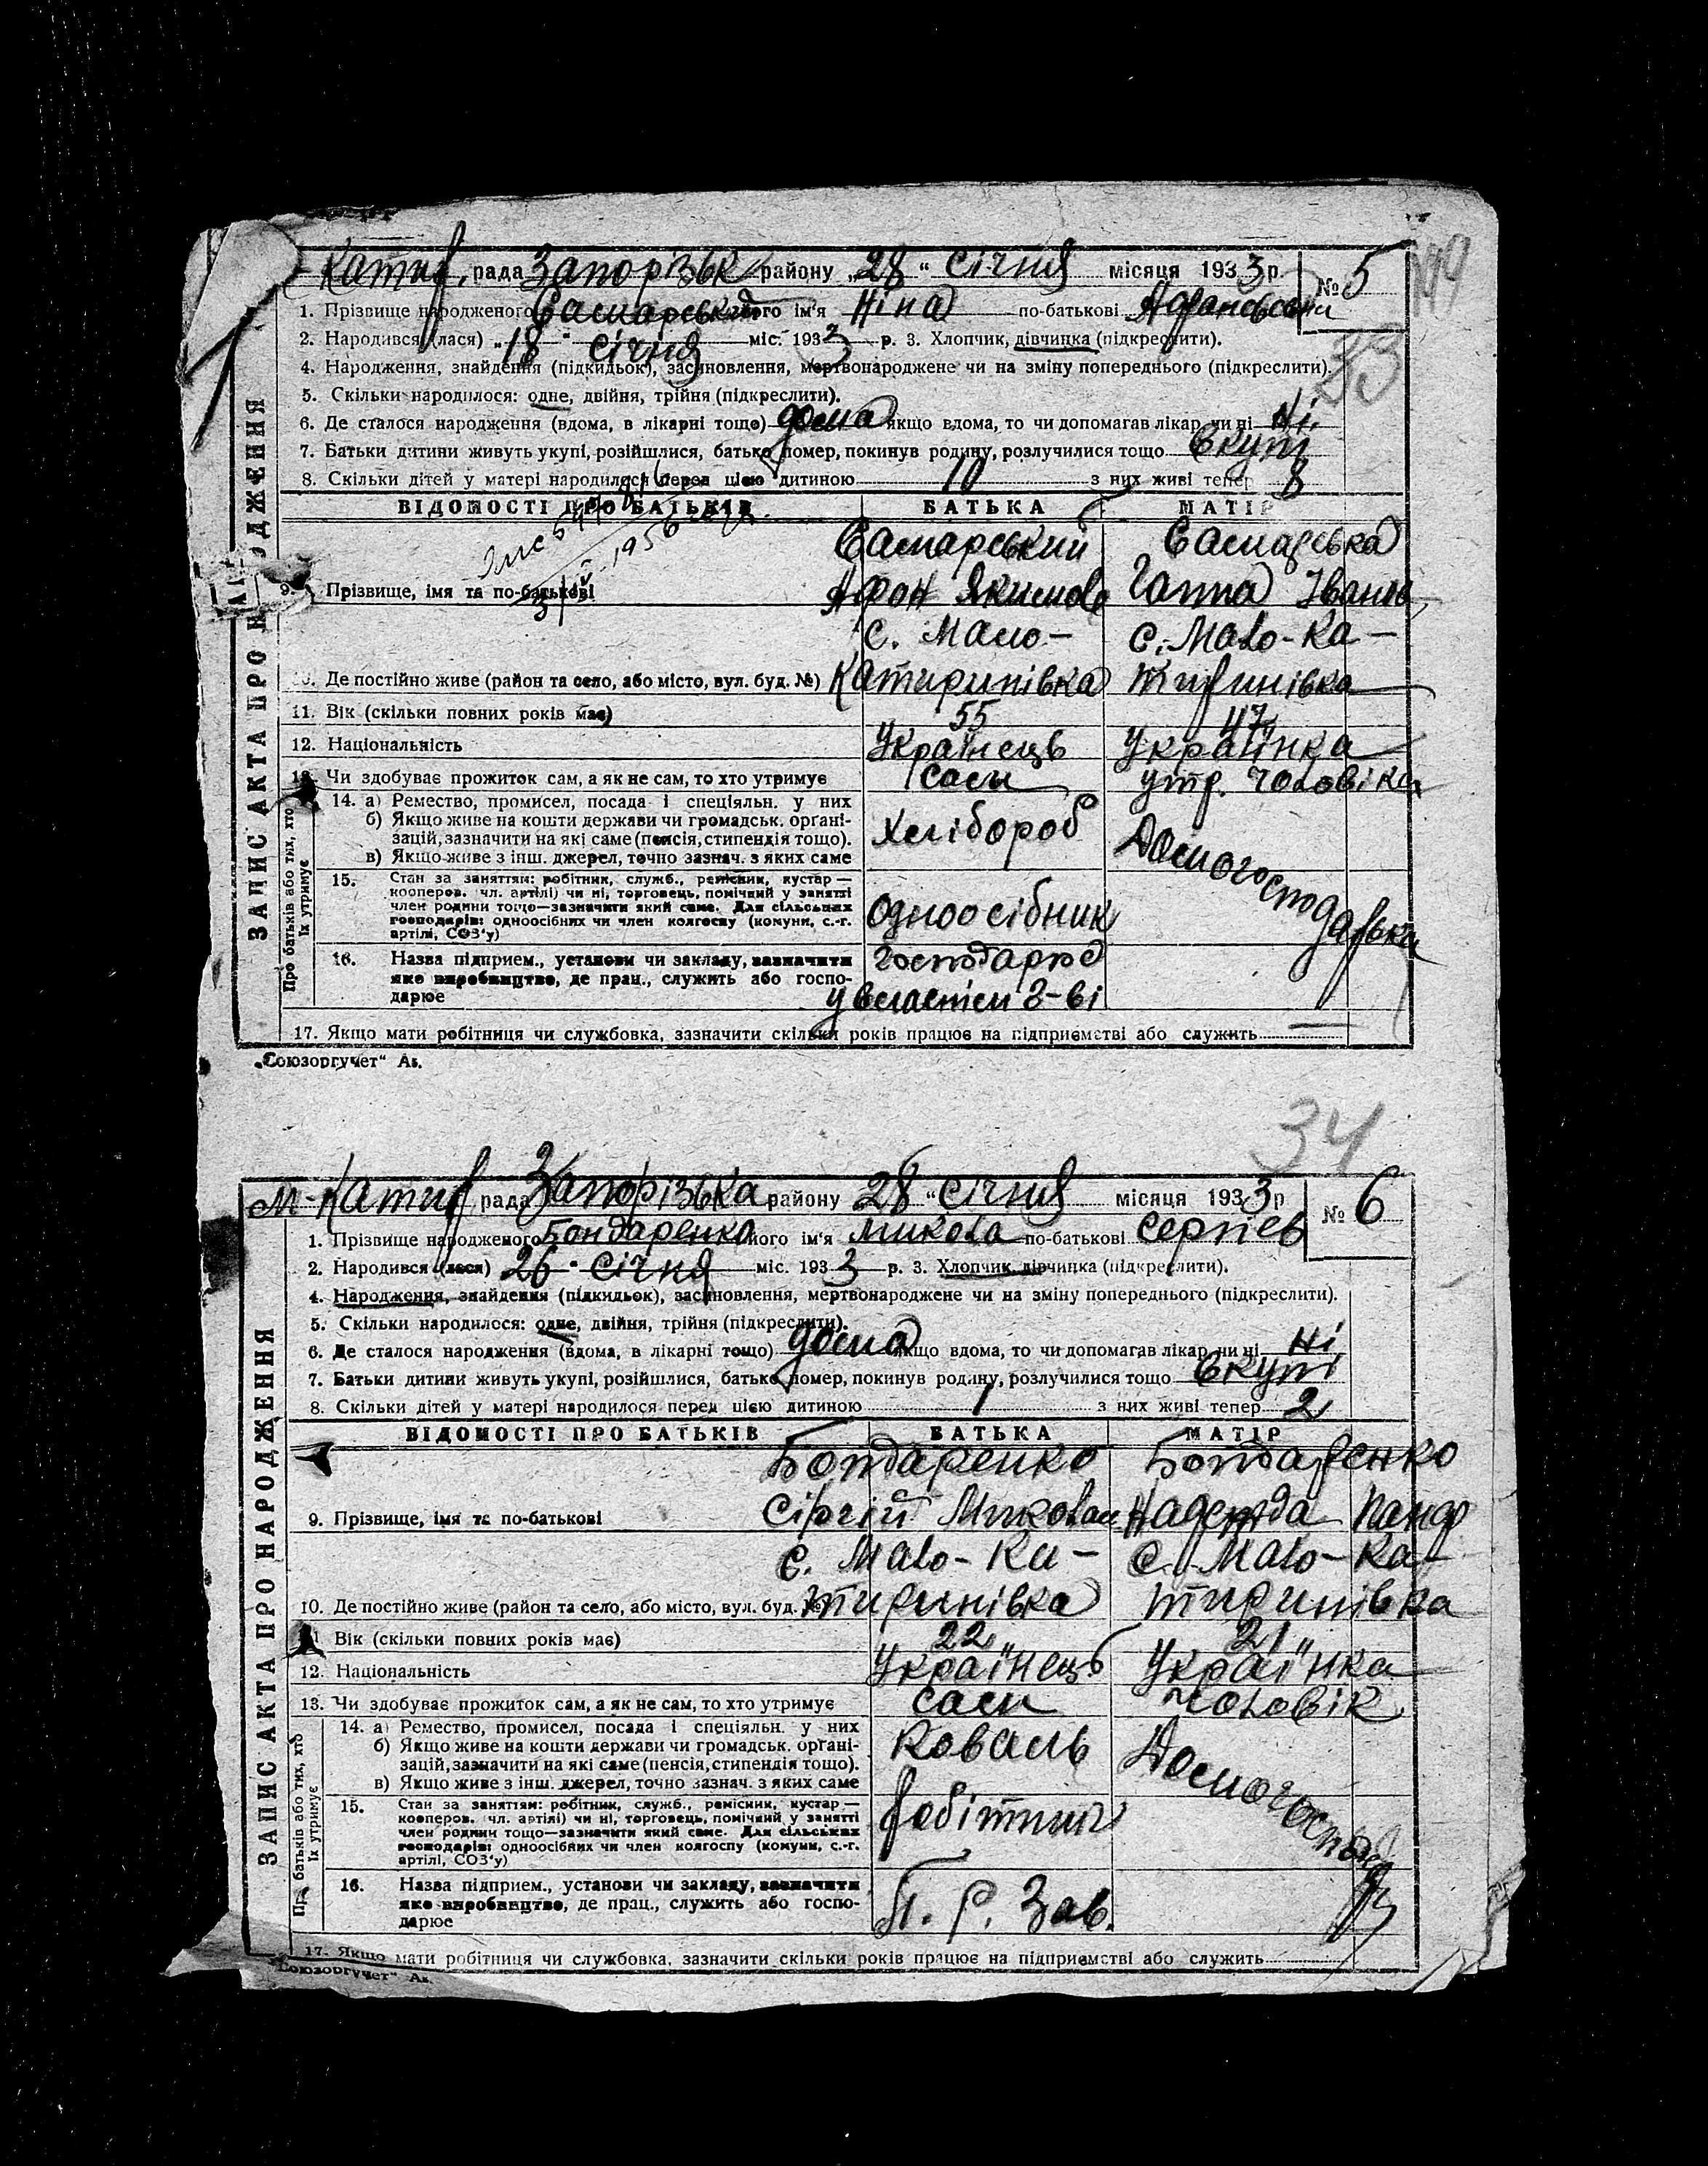 Катир. рада Запорізьк району „28“ Січня місяця 1933 р. № 5
1. Прізвище народженого Самарська його ім'я Ніна по-батькові
2. Народився (лася) „18“ Січня міс. 1933 р. 3. Хлопчик, дівчинка (підкреслити).
33
4. Народження, знайдення (підкидьок), засиновлення, мертвонароджене чи на зміну попереднього (підкреслити).
5. Скільки народилося: одне, двійня, трійня (підкреслити).
6. Де сталося народження (вдома, в лікарні тощо) дома якщо вдома, то чи допомагав лікар чи ні ні.
7. Батьки дитини живуть укупі, розійшлися, батько помер, покинув родину, розлучилися тощо вкупі
8. Скільки дітей у матері народилося перед цією дитиною 10 з них живі тепер 8
ВІДОМОСТІ ПРО БАТЬКІВ БАТЬКА МАТІР
ЗАПИС АКТА ПРО НАРОДЖЕННЯ
Самарський Самарська
9. Прізвище, імя та по-батькові Афон Якимов Ганна Іванов
с. Мало- с. Мало-Ка-
10. Де постійно живе (район та село, або місто, вул. буд. №) Катиринівка тиринівка
11. Вік (скільки повних років має) 55 47
12. Національність Українець Українка
13. Чи здобуває прожиток сам, а як не сам, то хто утримує сам утр. чоловіка
Про батьків або тих, хто їх утримує
14. а) Ремество, промисел, посада і спеціяльн. у них
б) Якщо живе на кошти держави чи громадськ. орґані-
зацій, зазначити на які саме (пенсія, стипендія тощо). Хлібороб Домогосподарка
в) Якщо живе з інш. джерел, точно зазнач. з яких саме
15. Стан за заняттям: робітник, служб., ремісник, кустар —
кооперов. чл. артілі) чи ні, торговець, помічний у занятті
член родини тощо—зазначити який саме. Для сільських
господарів: одноосібних чи член колгоспу (комуни, с.-г. одноосібник
артілі, СОЗ'у)
16. Назва підприєм., установи чи закладу, зазначити господарює
яке виробництво, де прац., служить або госпо-
дарює у власнім г-ві
17. Якщо мати робітниця чи службовка, зазначити скільки років працює на підприємстві або служить
„Союзоргучет“ Ак.
34
М-Катир рада Запорізька району 28 “ Січня місяця 1933 р № 6
1. Прізвище народженого Бондаренко його ім'я Микола по-батькові Сергіев
2. Народився (лася) 26 “ Січня міс. 1933 р. 3. Хлопчик, дівчинка (підкреслити).
4. Народження, знайдення (підкидьок), засиновлення, мертвонароджене чи на зміну попереднього (підкреслити).
5. Скільки народилося: одне, двійня, трійня (підкреслити).
6. Де сталося народження (вдома, в лікарні тощо) дома якщо вдома, то чи допомагав лікар чи ні ні
7. Батьки дитини живуть укупі, розійшлися, батько помер, покинув родину, розлучилися тощо вкупі
8. Скільки дітей у матері народилося перед цією дитиною 1 з них живі тепер 2
ВІДОМОСТІ ПРО БАТЬКІВ БАТЬКА МАТІР
ЗАПИС АКТА ПРО НАРОДЖЕННЯ
Бондаренко Бондаренко
9. Прізвище, імя та по-батькові Сіргій Миколаи Надежда Панф
с. Мало-Ка- с. Мало-Ка-
10. Де постійно живе (район та село, або місто, вул. буд. №) тиринівка тиринівка
11 Вік (скільки повних років має) 22 21
12. Національність Українець Українка
13. Чи здобуває прожиток сам, а як не сам, то хто утримує сам чоловік
Про батьків або тих, хто їх утримує
14. а) Ремество, промисел, посада і спеціяльн. у них
б) Якщо живе на кошти держави чи громадськ. орґані- Коваль
зацій, зазначити на які саме (пенсія, стипендія тощо).
в) Якщо живе з інш. джерел, точно зазнач. з яких саме
15. Стан за заняттям: робітник, служб., ремісник, кустар —
кооперов. чл. артілі) чи ні, торговець, помічний у занятті робітник
член родини тощо—зазначити який саме. Для сільських
господарів: одноосібних чи член колгоспу (комуни, с.-г.
артілі, СОЗ'у)
16. Назва підприєм., установи чи закладу, зазначити
яке виробництво, де прац., служить або госпо- П. Р. Зав.
дарює
17. Якщо мати робітниця чи службовка, зазначити скільки років працює на підприємстві або служить
„Союзоргучет“ Ак.